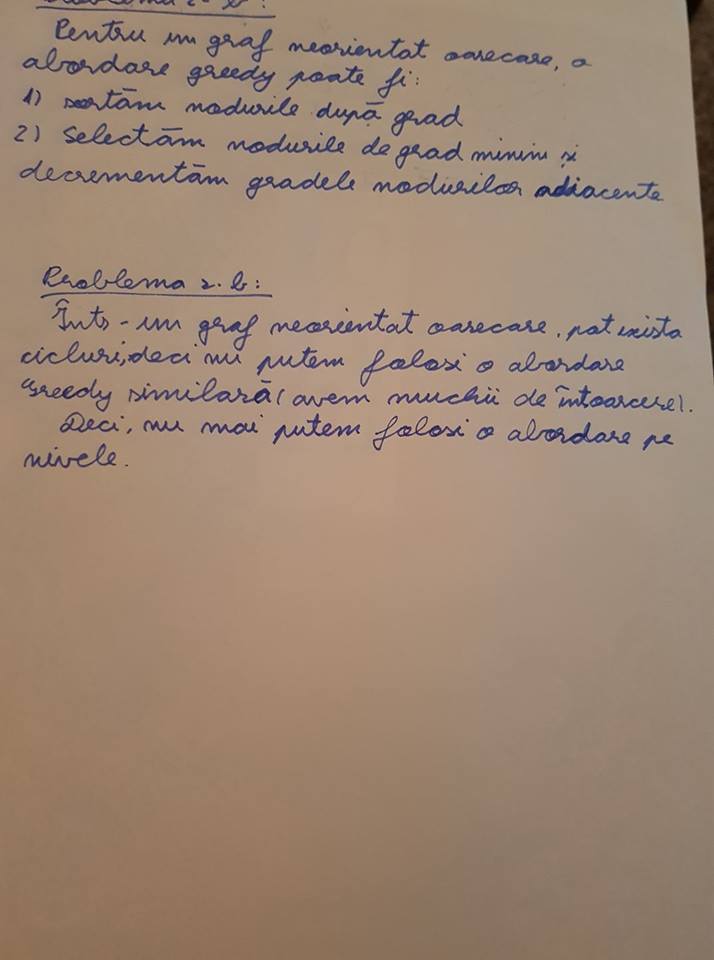 Problema 2. b:
Pentru un graf neorientat oarecare, o
abordare greedy poate fi:
1) sortăm nodurile după grad
2) Selectăm nodurile de grad minim și
decrementăm gradele nodurilor adiacente
Problema 2. b:
Într-un graf neorientat oarecare, pot exista
cicluri, deci nu putem folosi o abordare
Greedy similară (avem muchii de întoarcere).
Deci, nu mai putem folosi o abordare pe
nivele.